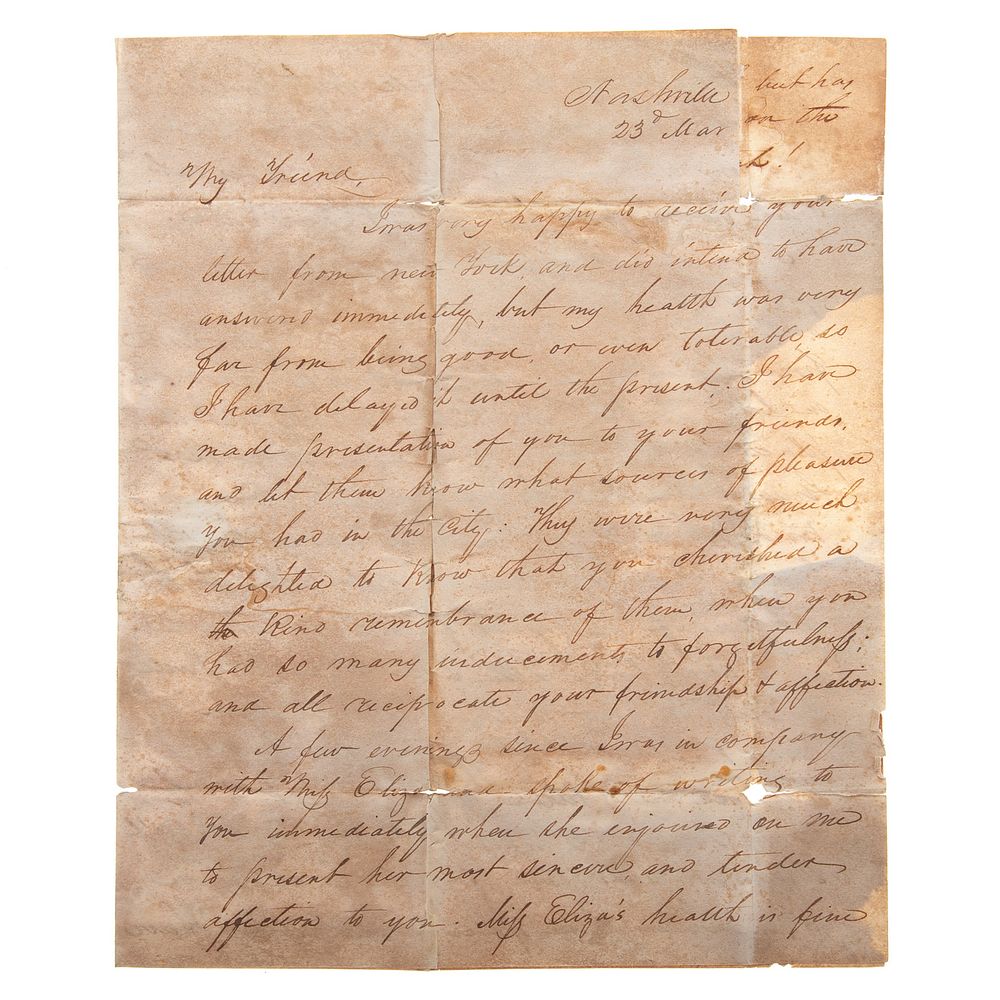 Nashville
23d Mar
but has
on the
My Friend,
I was very happy to receive your
letter from new York, and did intend to have
answered immediately, but my health was very
far from being good, or even tolerable, so
I have delayed it until the present. I have
made presentation of you to your friends,
and let them know what sources of pleasure
You had in the City: They were very much
delighted to know that you cherished a
kind remembrance of them, when you
had so many inducements to forgetfulness;
and all reciprocate your friendship & affection.
A few evenings since I was in company
with Miss Eliza and spoke of writing to
You immediately, when she enjoined on me
to present her most sincere, and tender
affection to you. Miss Eliza's health is fine